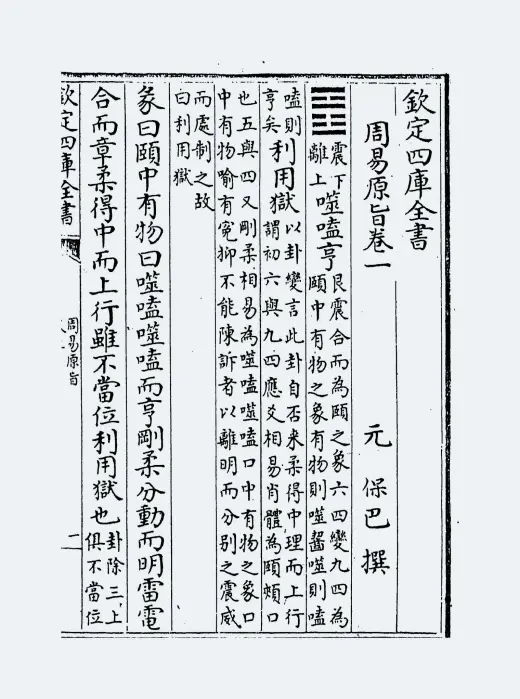 欽定四庫全書
周易原旨卷一
元 保巴 撰
震下
離上
噬嗑亨
艮震合而為頤之象六四變九四為
頤中有物之象有物則噬齧噬則嗑
嗑則
亨矣
利用獄
以卦變言此卦自否来柔得中理而上行
謂初六與九四應爻相易肖體為頤頰口
也五與四又剛柔相易為噬嗑噬嗑口中有物之象口
中有物喻有冤抑不能陳訴者以離明而分别之震威
而處制之故
曰利用獄
彖曰頤中有物曰噬嗑噬嗑而亨剛柔分動而明雷電
合而章柔得中而上行雖不當位利用獄也
卦除三上
俱不當位
欽定四庫全書
周易原旨